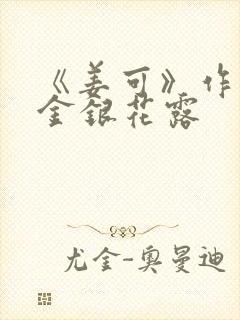 《姜可》作
金银花露
尤金-奥曼迪